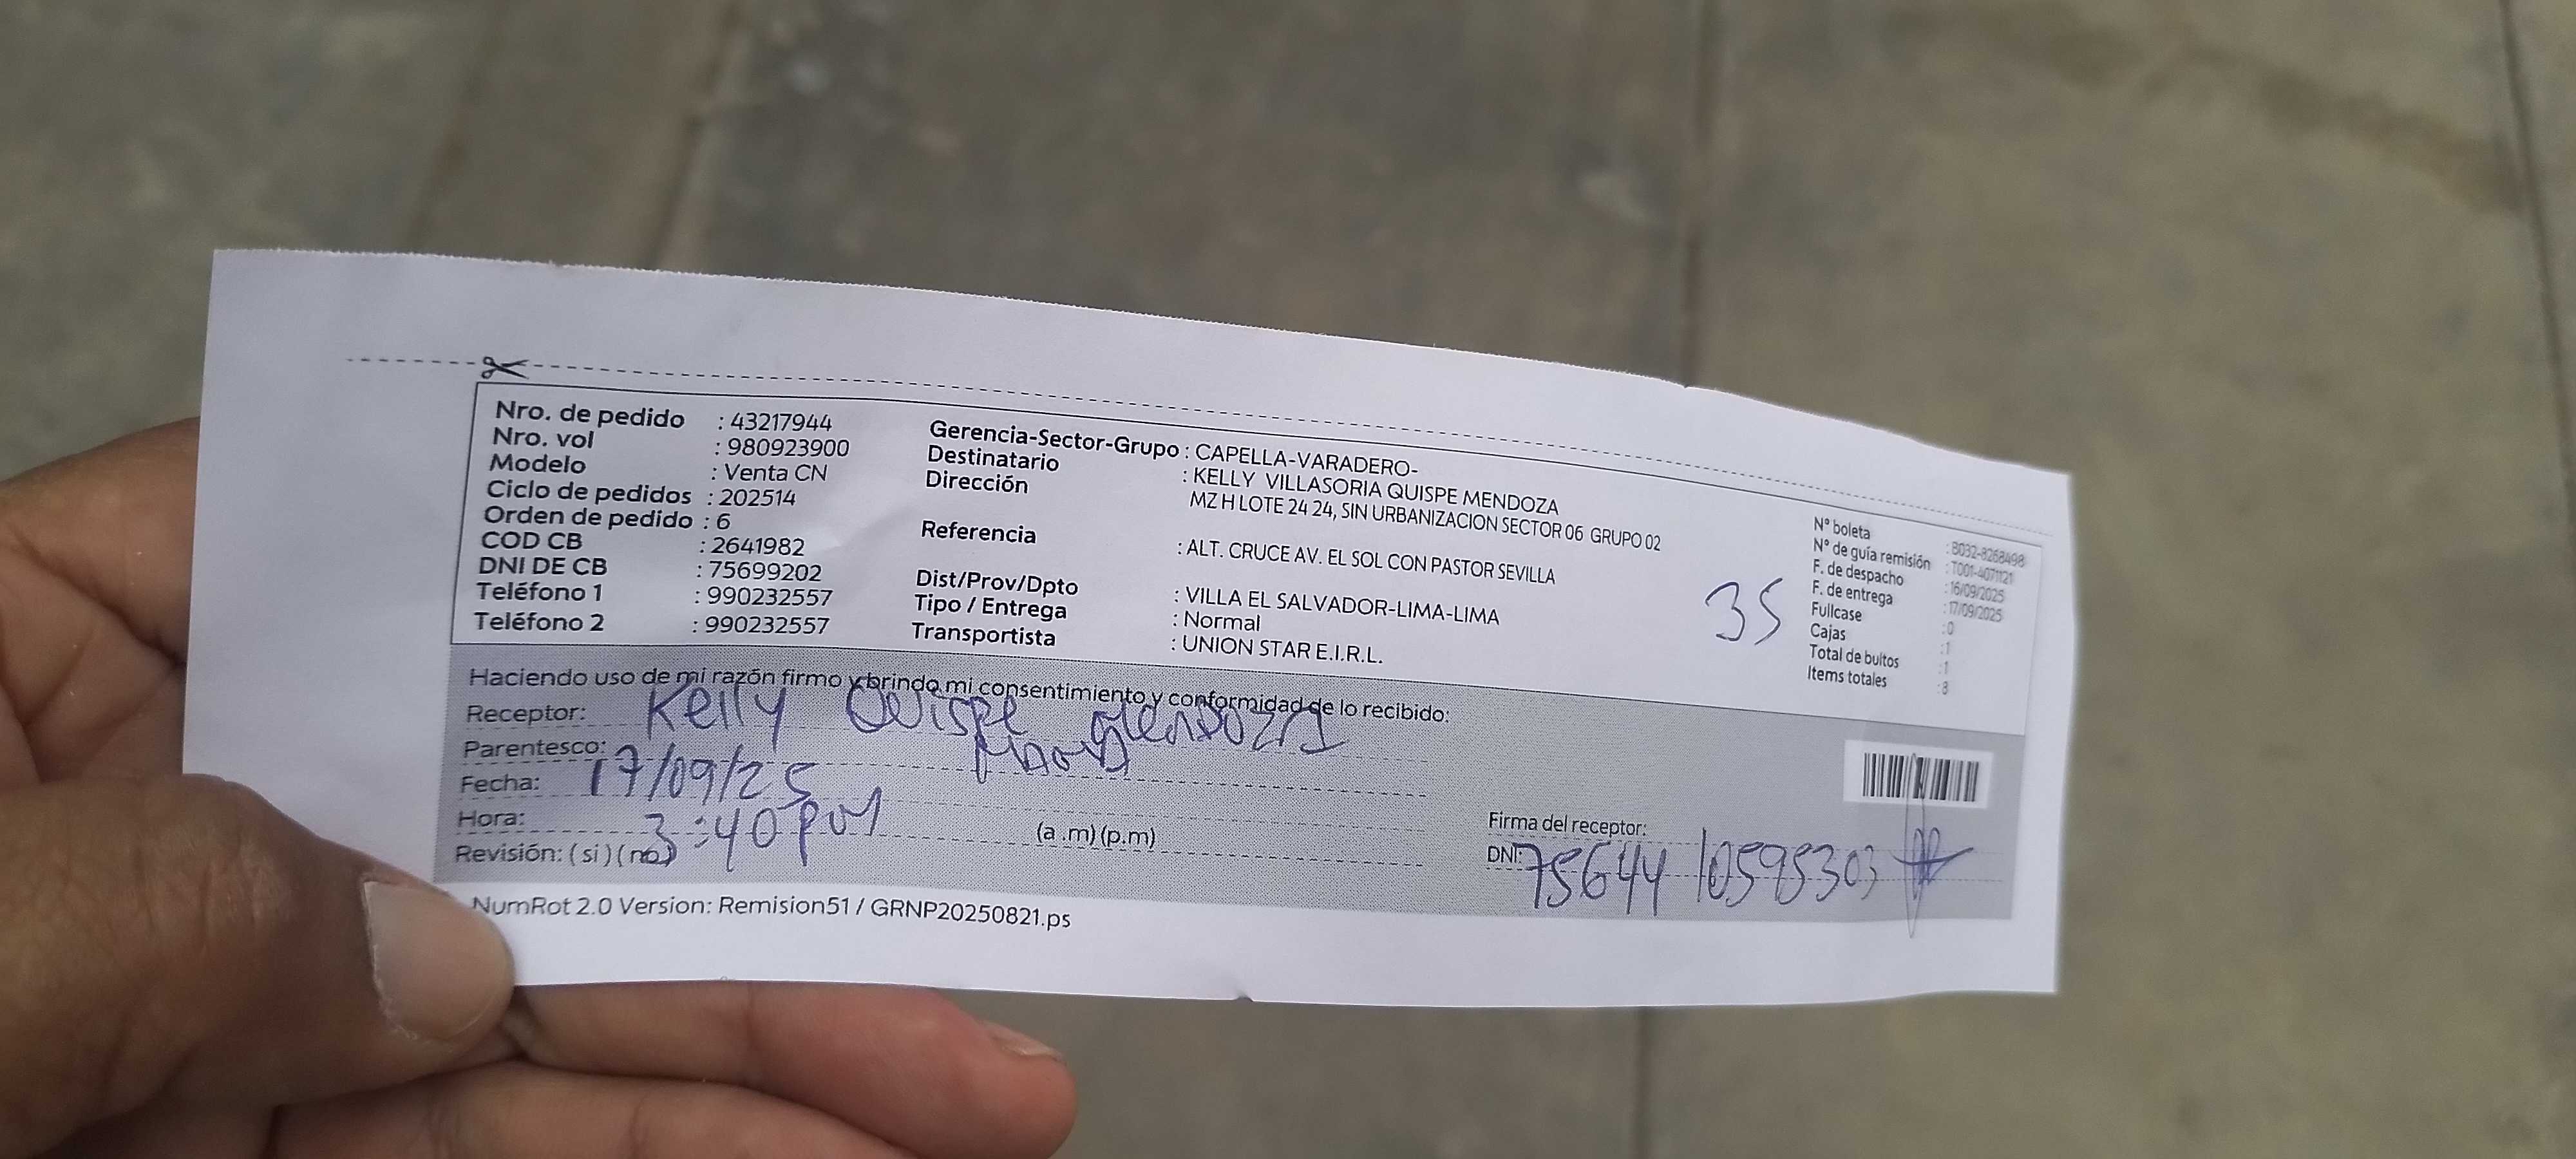 Nro. de pedido : 43217944
Nro. vol : 980923900
Modelo : Venta CN
Ciclo de pedidos : 202514
Orden de pedido : 6
COD CB : 2641982
DNI DE CB : 75699202
Teléfono 1 : 990232557
Teléfono 2 : 990232557
Gerencia-Sector-Grupo : CAPELLA-VARADERO-
Destinatario : KELLY VILLASORIA QUISPE MENDOZA
Dirección MZ H LOTE 24 24, SIN URBANIZACION SECTOR 06 GRUPO 02
Referencia : ALT. CRUCE AV. EL SOL CON PASTOR SEVILLA
Dist/Prov/Dpto : VILLA EL SALVADOR-LIMA-LIMA
Tipo / Entrega : Normal
Transportista : UNION STAR E.I.R.L.
35
N° boleta : B032-8268498
N° de guía remisión : T001-4071121
F. de despacho : 16/09/2025
F. de entrega : 17/09/2025
Fullcase : 0
Cajas : 1
Total de bultos : 1
Items totales : 8
Haciendo uso de mi razón firmo y brindo mi consentimiento y conformidad de lo recibido:
Receptor: Kelly Quispe MendozA
Parentesco:
Fecha: 17/09/25
Hora: 3:40 pm (a .m) (p.m)
Revisión: ( si ) ( no )
Firma del receptor:
DNI: 75644 10595303
NumRot 2.0 Version: Remision51 / GRNP20250821.ps